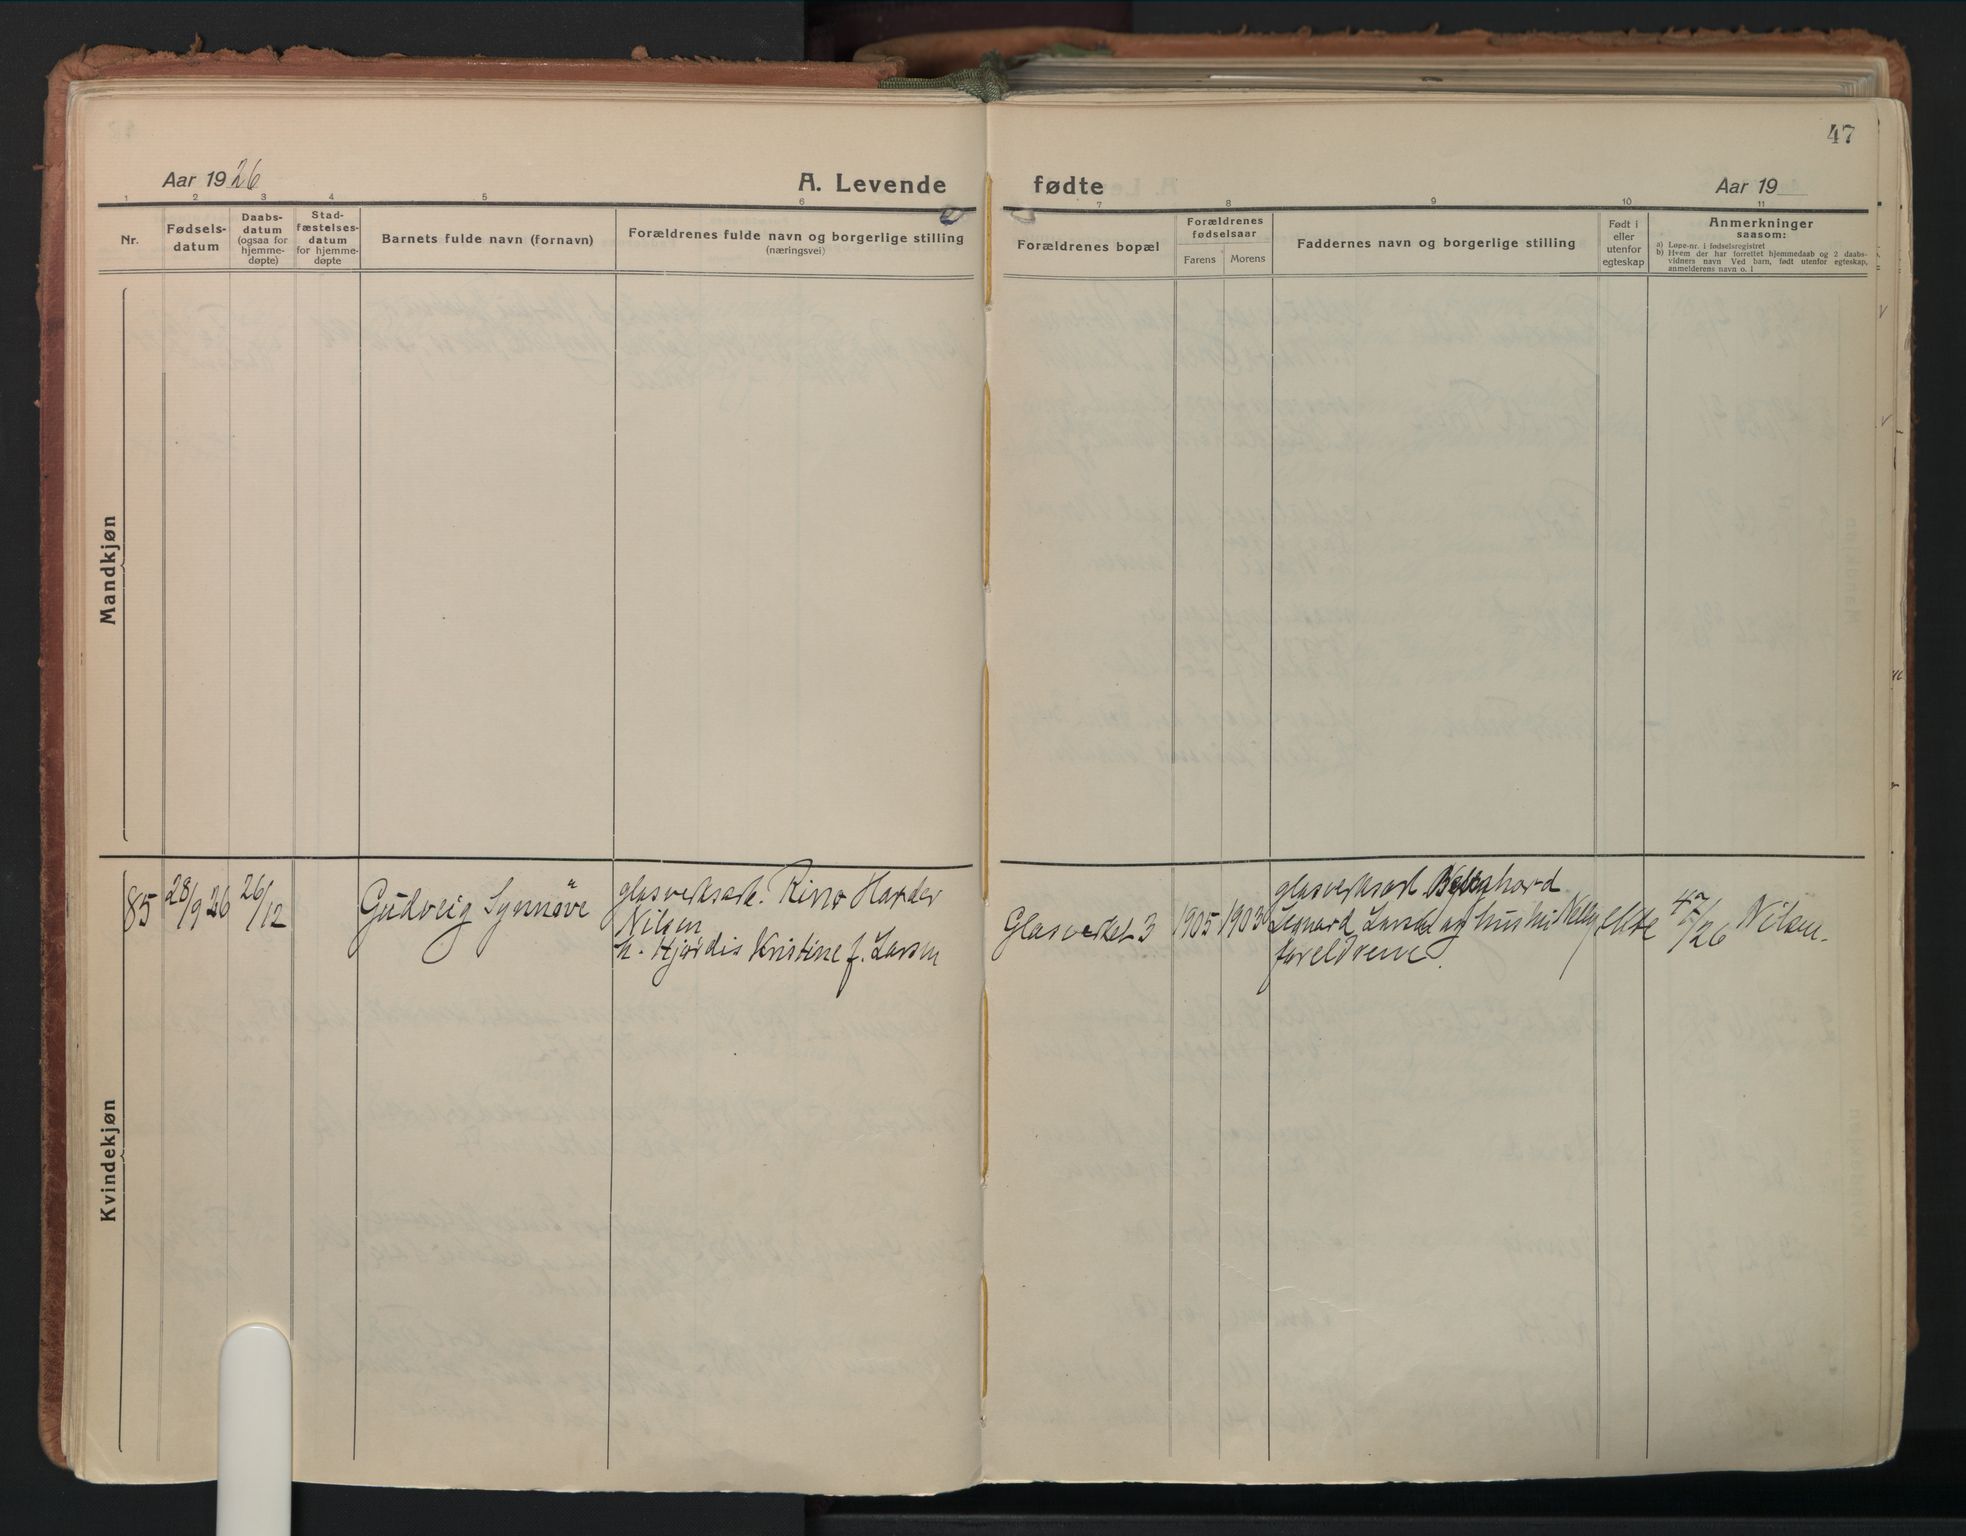 47
Aar 1926
A. Levende fødte
Aar 19
1 2 3 4 5 6 7 8 9 10 11
Nr.
Fødsels-
datum
Daabs-
datum
(ogsaa for
hjemme-
døpte)
Stad-
fæstelses-
datum
for hjemme-
døpte
Barnets fulde navn (fornavn)
Forældrenes fulde navn og borgerlige stilling
(næringsvei)
Forældrenes bopæl
Forældrenes
fødselsaar
Farens Morens
Faddernes navn og borgerlige stilling
Født i
eller
utenfor
egteskap
Anmerkninger
saasom:
a) Løpe-nr. i fødselsregistret
b) Hvem der har forrettet hjemmedaab og 2 daabs-
vidners navn Ved barn, født utenfor egteskap,
anmelderens navn o. l
Mandkjøn
Kvindekjøn
85
28/9 26
26/12
Gudveig Synnøve
glasverksarb. Rino Harder
Nilsen
h. Hjørdis Kristine f. Larsen
Glasverket 3
1905
1903
glasverksarb
Leonard og hustru Nelly
foreldrene.
ekte
/26 Nilsen.